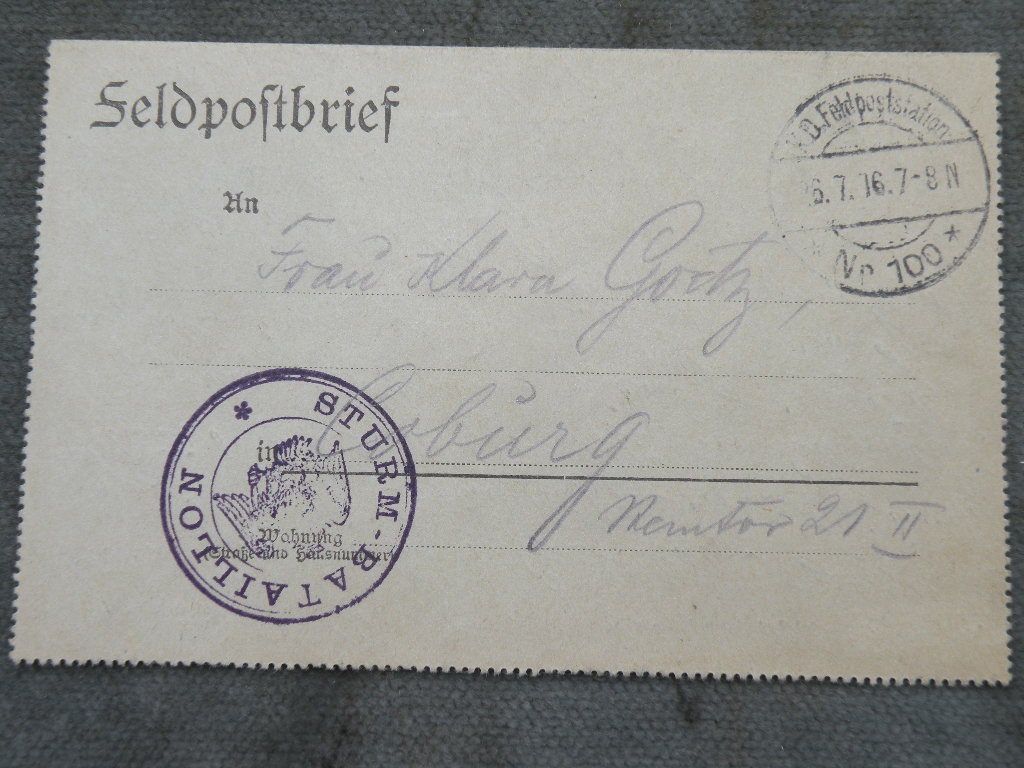 Feldpostbrief
K.D. Feldpoststation
26.7.16. 7-8 N
* Nr. 100 *
An
Frau Klara Goritz,
in Coburg
Wohnung
Straße und Hausnummer
21 II
* STURM-BATAILLON